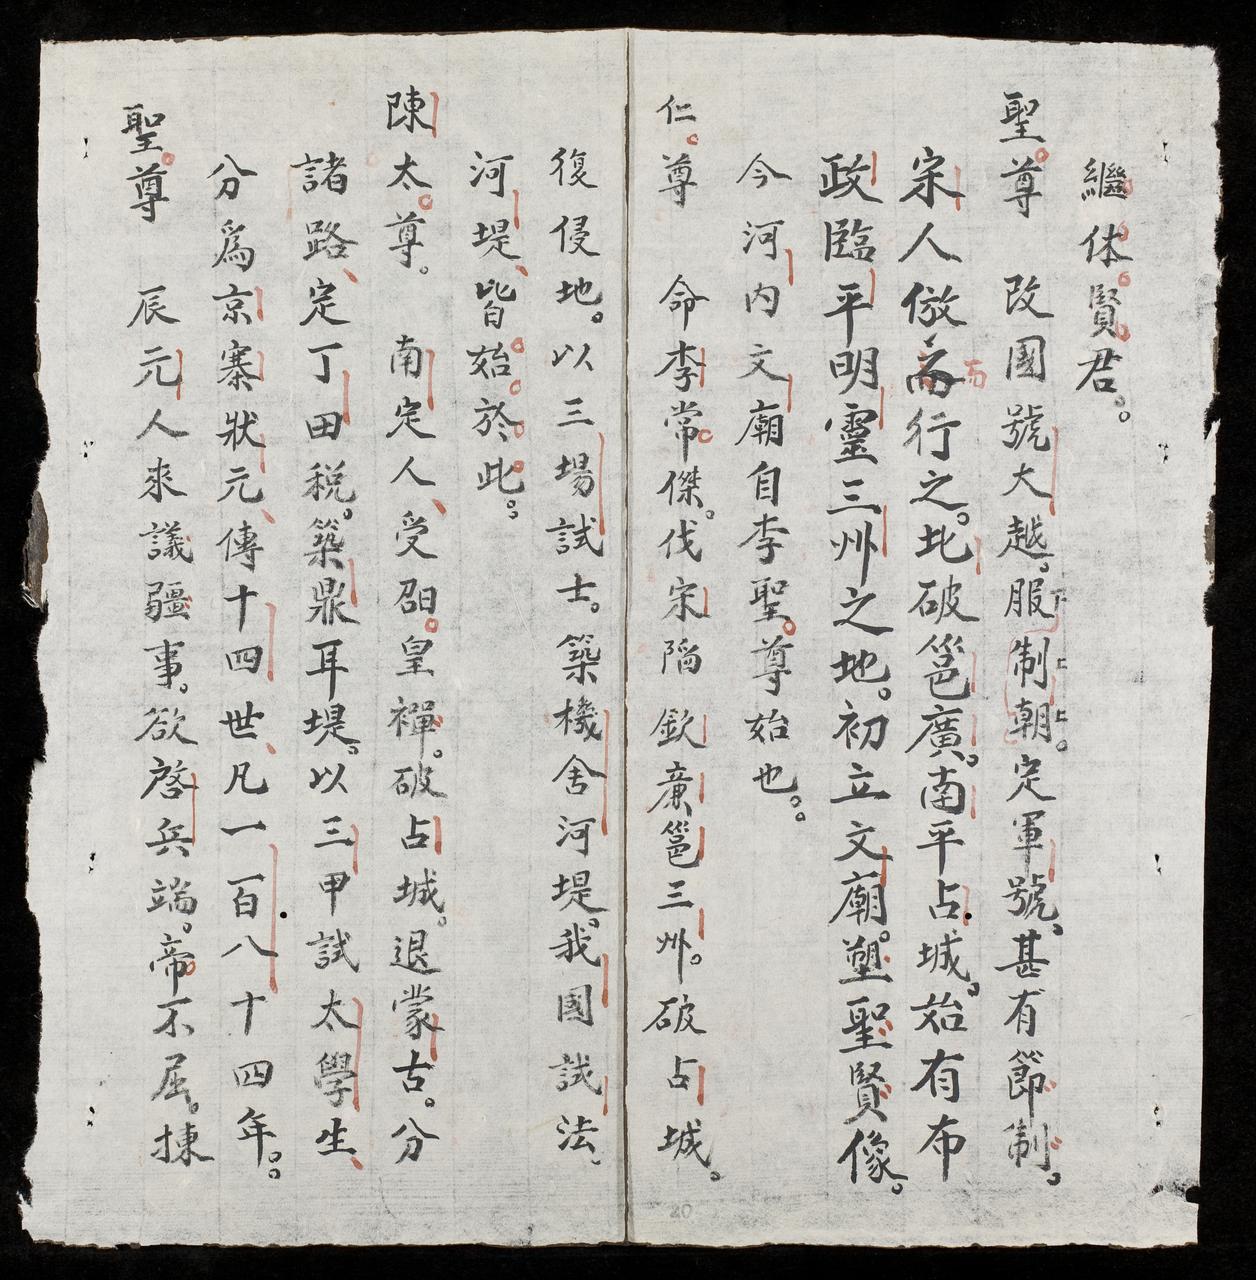 繼体賢君。
聖尊 改國號大越。服制朝。定軍號、甚有節制。
宋人倣而行之。北破邕廣。南平占城。始有布
政臨平明靈三州之地。初立文廟。塑聖賢像。
今河内文廟自李聖尊始也。
仁尊 命李常傑。伐宋陷 欽亷邕三州。破占城。
復侵地。以三場試士。築機舍河堤。我國試法、
河堤、皆始於此。
陳太尊。 南定人、受昭皇禪。破占城。退蒙古。分
諸路、定丁田税。築鼎耳堤。以三甲試太學生、
分爲京寨狀元、傳十四世、凡一百八十四年。
聖尊 辰元人來議疆事。欲啓兵端。帝不屈。揀
20